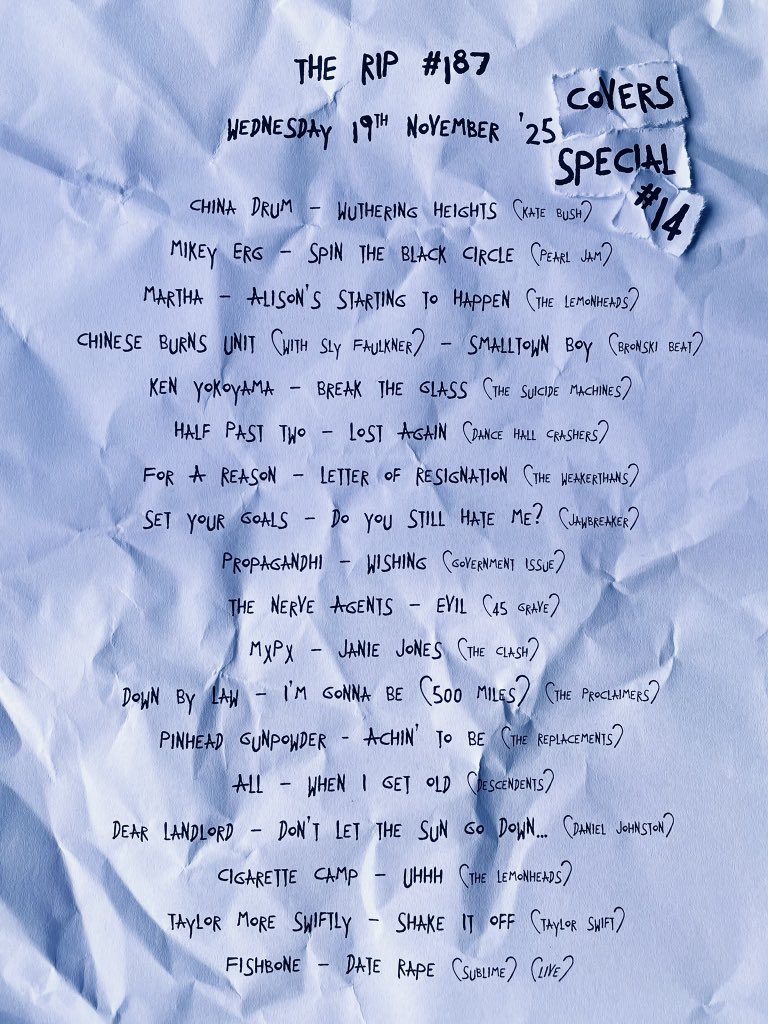 THE RIP #187
WEDNESDAY 19TH NOVEMBER '25
COVERS
SPECIAL
#14
CHINA DRUM – WUTHERING HEIGHTS (KATE BUSH)
MIKEY ERG – SPIN THE BLACK CIRCLE (PEARL JAM)
MARTHA – ALISON'S STARTING TO HAPPEN (THE LEMONHEADS)
CHINESE BURNS UNIT (WITH SLY FAULKNER) – SMALLTOWN BOY (BRONSKI BEAT)
KEN YOKOYAMA – BREAK THE GLASS (THE SUICIDE MACHINES)
HALF PAST TWO – LOST AGAIN (DANCE HALL CRASHERS)
FOR A REASON – LETTER OF RESIGNATION (THE WEAKERTHANS)
SET YOUR GOALS – DO YOU STILL HATE ME? (JAWBREAKER)
PROPAGANDHI – WISHING (GOVERNMENT ISSUE)
THE NERVE AGENTS – EVIL (45 GRAVE)
MXPX – JANIE JONES (THE CLASH)
DOWN BY LAW – I'M GONNA BE (500 MILES) (THE PROCLAIMERS)
PINHEAD GUNPOWDER - ACHIN' TO BE (THE REPLACEMENTS)
ALL – WHEN I GET OLD (DESCENDENTS)
DEAR LANDLORD – DON'T LET THE SUN GO DOWN... (DANIEL JOHNSTON)
CIGARETTE CAMP – UHHH (THE LEMONHEADS)
TAYLOR MORE SWIFTLY – SHAKE IT OFF (TAYLOR SWIFT)
FISHBONE – DATE RAPE (SUBLIME) (LIVE)